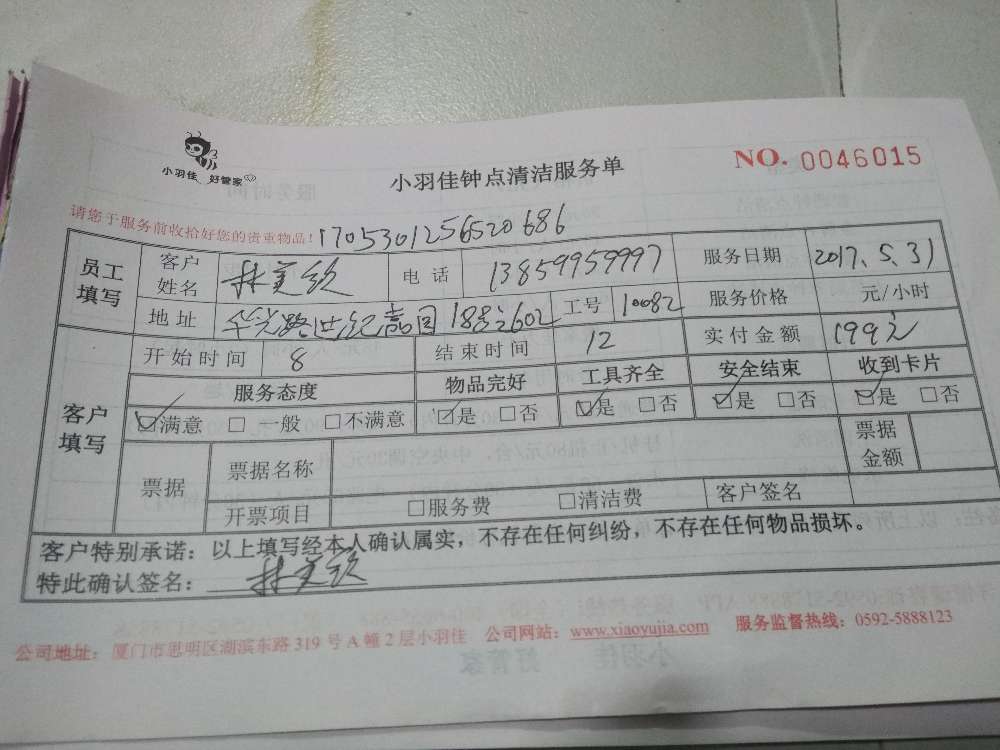 小羽佳 好管家
小羽佳钟点清洁服务单
NO. 0046015
请您于服务前收拾好您的贵重物品! 1705301256520686
员工填写 客户姓名 林美钦 电话 13859959997 服务日期 2017.5.31
地址 华光路世纪嘉园 602 工号 10082 服务价格 元/小时
客户填写 开始时间 8 结束时间 12 实付金额 199元
服务态度 物品完好 工具齐全 安全结束 收到卡片
☑满意 □一般 □不满意 ☑是 □否 ☑是 □否 ☑是 □否 ☑是 □否
票据 票据名称 票据金额
开票项目 □服务费 □清洁费 客户签名
客户特别承诺:以上填写经本人确认属实,不存在任何纠纷,不存在任何物品损坏。
特此确认签名: 林美钦
公司地址:厦门市思明区湖滨东路319号A幢2层小羽佳 公司网站:www.xiaoyujia.com 服务监督热线:0592-5888123